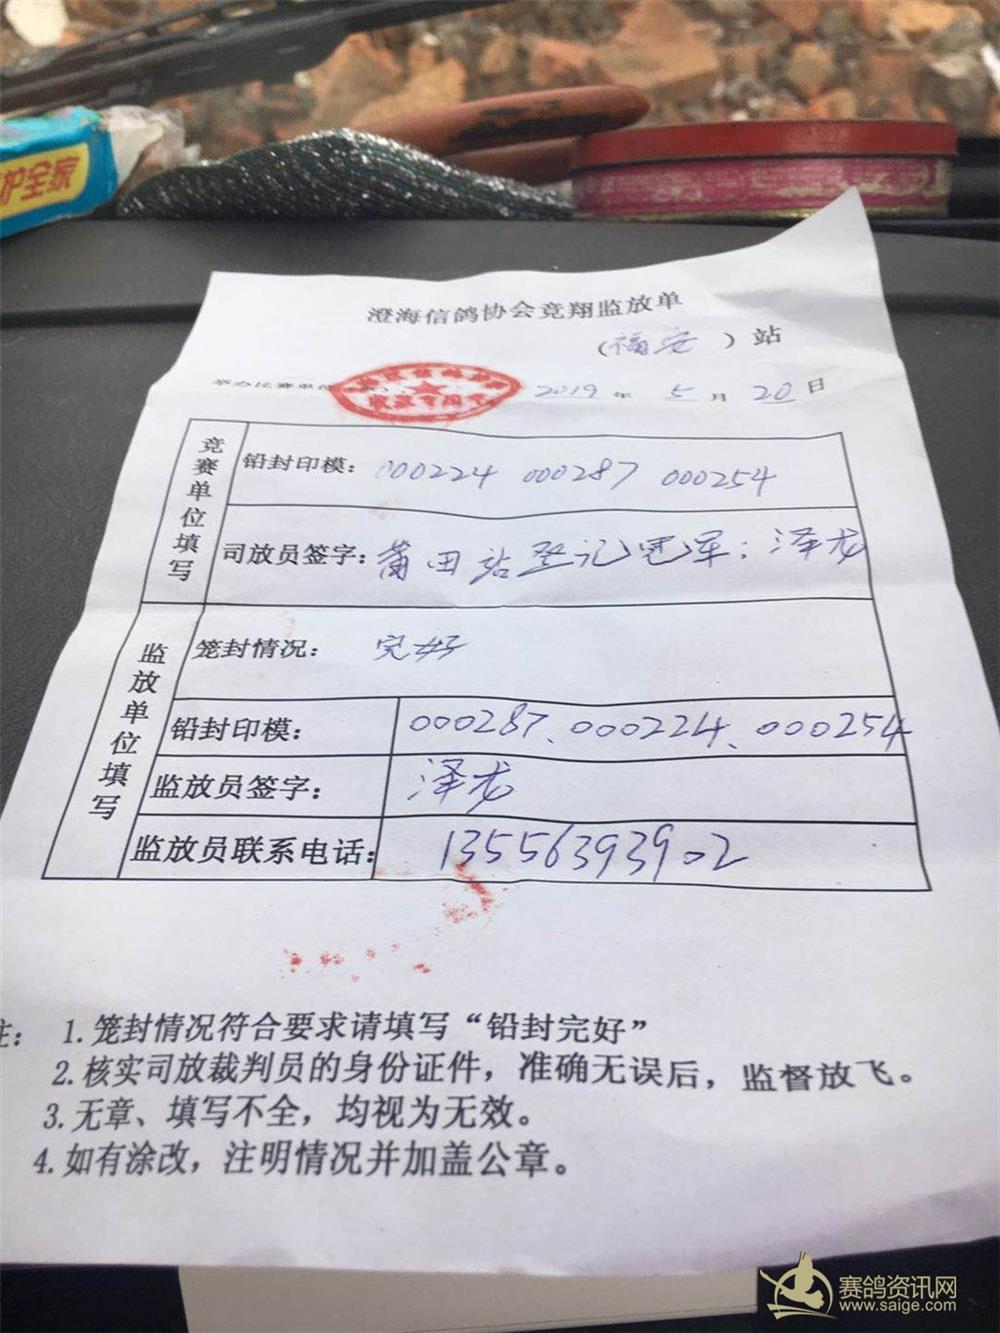 护全家
澄海信鸽协会竞翔监放单
(福安)站
举办比赛单位
2019年5月20日
竞赛单位填写
铅封印模: 000224 000287 000254
司放员签字: 莆田站登记冠军: 泽龙
监放单位填写
笼封情况: 完好
铅封印模: 000287、000224、000254
监放员签字: 泽龙
监放员联系电话: 13556393902
注: 1.笼封情况符合要求请填写“铅封完好”
2.核实司放裁判员的身份证件，准确无误后，监督放飞。
3.无章、填写不全，均视为无效。
4.如有涂改，注明情况并加盖公章。
赛鸽资讯网
www.saige.com